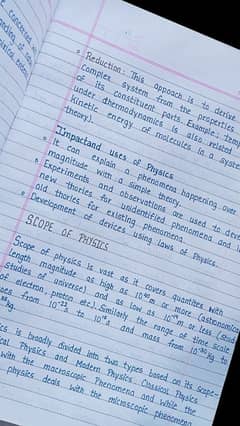 e. Concerned wi
nding of nat
hysics bases
• Reduction: This approach is to derive
complex system from the properties
of its constituent parts. Example: temp
under thermodynamics is also related
kinetic energy of molecules in a system
theory).
Impartand uses of Physics
• It can explain a phenomena happening over
magnitude with a simple theory.
• Experiments and observations are used to deve
new thories for unidentified phenomena and
old thories for existing phenomena.
• Development of devices using laws of Physics.
SCOPE OF PHYSICS
Scope of physics is vast as it covers quantities with
length magnitude as high as 10⁴⁰m or more (astronomica
studies of universe) and as low as 10⁻¹⁴m or less (stud
of electron, proton etc). Similarly the range of time scale
oes from 10⁻²²s to 10¹⁸s and mass from 10⁻³⁰kg to
kg.
ics is broadly divided into two types based on its scope-
cal Physics and Modern Physics. Classical Physics
with the macroscopic Phenomena and while the
physics deals with the microscopic phenomena